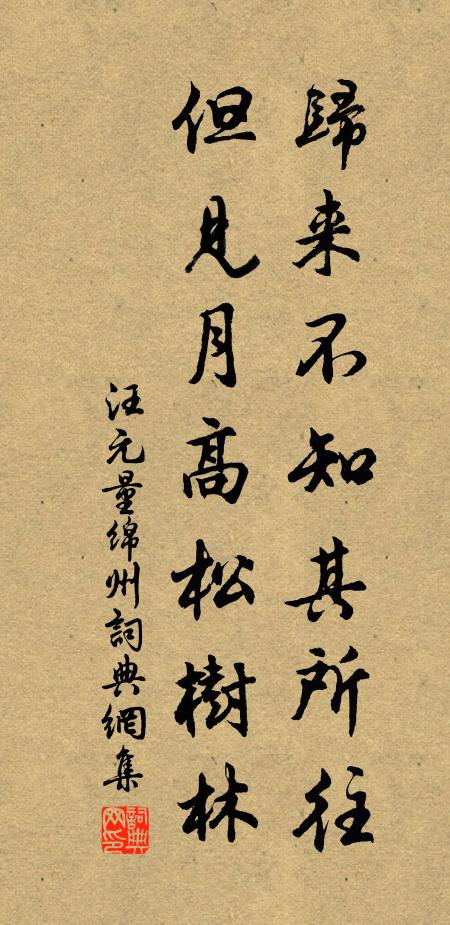 歸来不知其所往
但見月高松樹林
汪元量绵州詞典網集
詞典網印